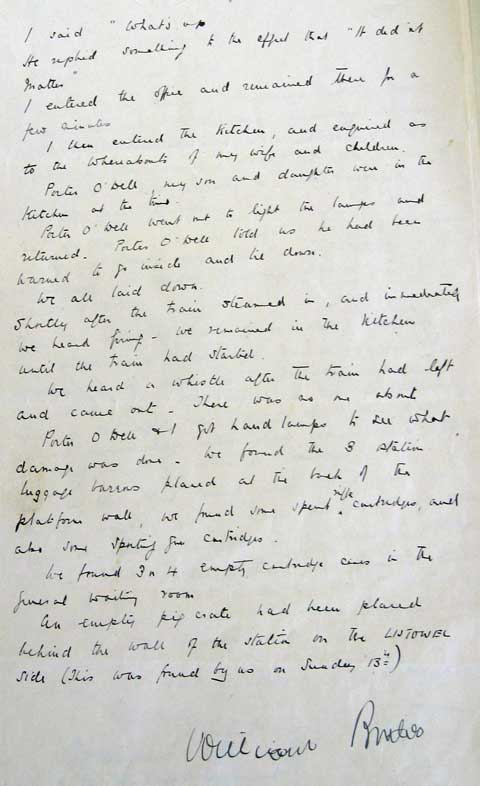 I said "What's up
He replied something to the effect that "It did'nt
Matter"
I entered the office and remained there for a
few minutes
I then entered the Kitchen, and enquired as
to the whereabouts of my wife and children.
Porter O'Dell, my son and daughter were in the
Kitchen at the time.
Porter O'Dell went out to light the lamps and
returned. Porter O'Dell told us he had been
warned to go inside and lie down.
We all laid down.
Shortly after the train steamed in, and immediately
we heard firing - we remained in the Kitchen
until the train had started.
We heard a whistle after the train had left
and came out - There was no one about
Porter O'Dell & I got hand lamps to see what
damage was done - We found the 3 station
luggage barrows placed at the back of the
platform wall, we found some spent rifle cartridges, and
also some sporting gun cartridges.
We found 3 or 4 empty cartridge cases in the
General waiting room
An empty pig crate had been placed
behind the wall of the station on the LISTOWEL
side (This was found by us on Sunday 13th)
William